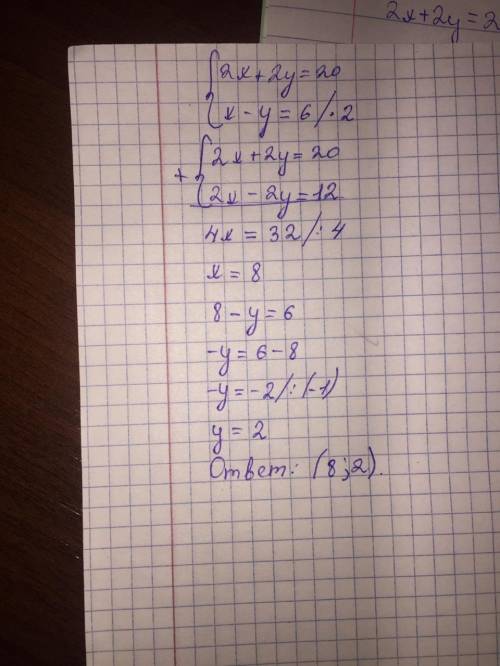 2x+2y=2
2x+2y=20
x-y=6/·2
+
2x+2y=20
2x-2y=12
4x=32/:4
x=8
8-y=6
-y=6-8
-y=-2/:(-1)
y=2
Ответ: (8;2).